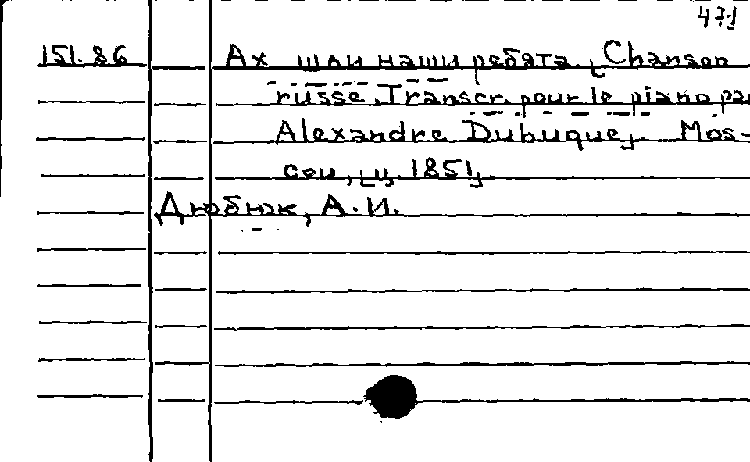 471
151.86 Ах шли наши ребята. [Chanson
russe. Transcr. pour le piano par
Alexandre Dubuque]. Mos-
cou, [ц. 1851].
Дюбюк, А.И.